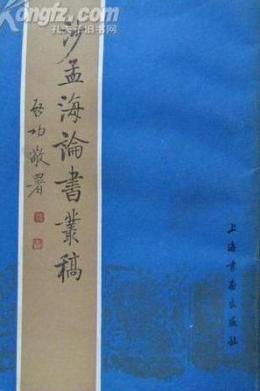 Kongfz.com
孔夫子旧书网
沙孟海論書叢稿
啓功敬署
上海書畫出版社